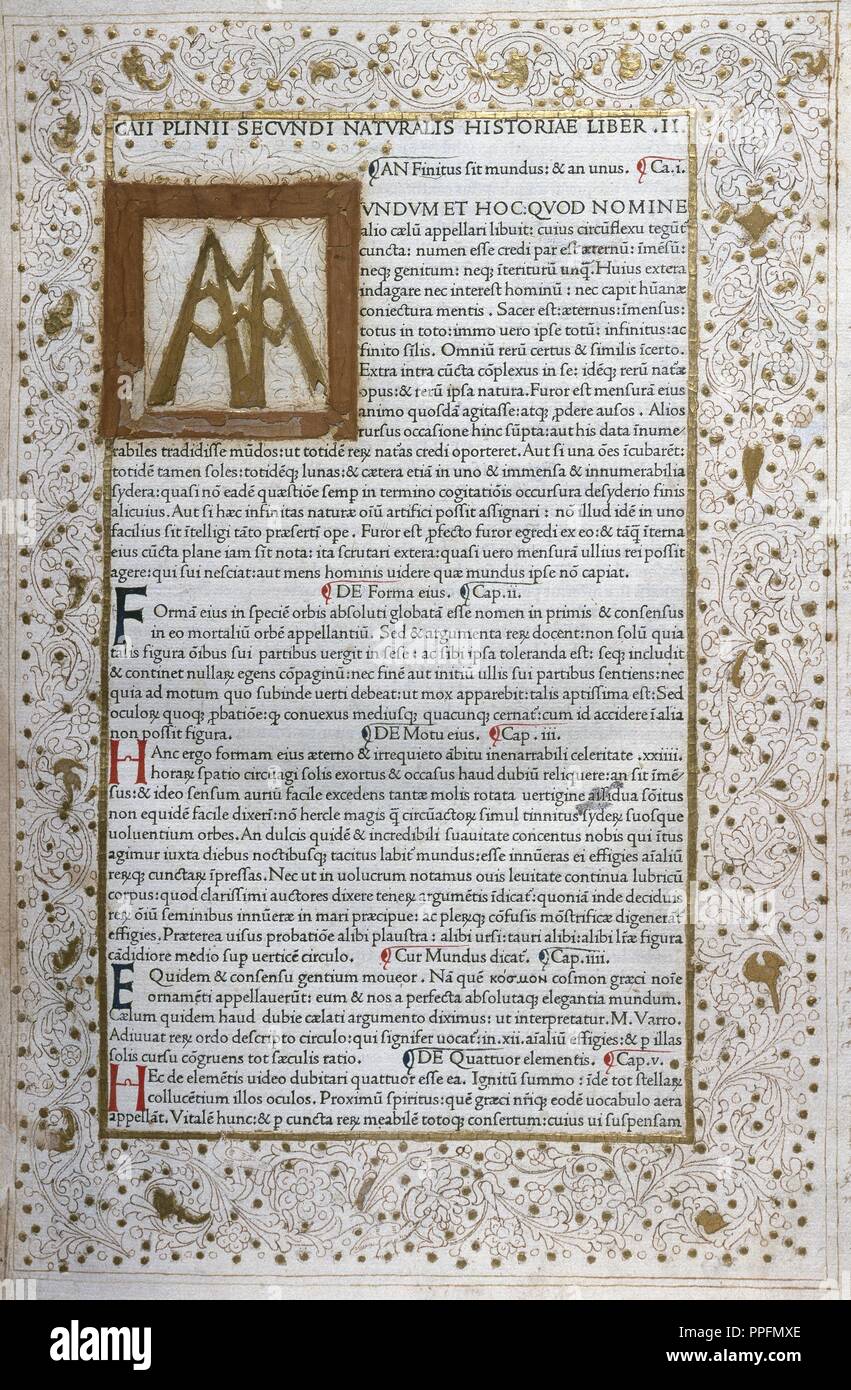 CAII PLINII SECVNDI NATVRALIS HISTORIAE LIBER .II.
AN Finitus sit mundus: & an unus. Ca.i.
M
VNDVM ET HOC: QVOD NOMINE
alio cælū appellari libuit: cuius circūflexu tegūt
cuncta: numen esse credi par est æternū: īmēsū:
neq; genitum: neq; īteriturū unq̄. Huius extera
indagare nec interest hominū: nec capit hūanæ
coniectura mentis. Sacer est: æternus: īmensus:
totus in toto: immo uero ipse totū: infinitus: ac
finito sīlis. Omniū rerū certus & similis īcerto.
Extra intra cūcta cōplexus in se: idēq; rerū natæ
opus: & rerū ipsa natura. Furor est mensurā eius
animo quosdā agitasse: atq; ꝓdere ausos. Alios
rursus occasione hinc sūpta: aut his data īnume⸗
rabiles tradidisse mūdos: ut totidē reꝝ natas credi oporteret. Aut si una ōes īcubarēt:
totidē tamen soles: totidēq; lunas: & cætera etiā in uno & immensa & innumerabilia
sydera: quasi nō eadē quæstiōe semp in termino cogitatiōis occursura desyderio finis
alicuius. Aut si hæc infinitas naturæ oiū artifici possit assignari: nō illud idē in uno
facilius sit ītelligi tāto præserti ope. Furor est ꝓfecto furor egredi ex eo: & tāq̄ īterna
eius cūcta plane iam sīt nota: ita scrutari extera: quasi uero mensurā ullius rei possit
agere: qui sui nesciat: aut mens hominis uidere quæ mundus ipse nō capiat.
DE Forma eius. Cap.ii.
FOrmā eius in speciē orbis absoluti globatā esse nomen in primis & consensus
in eo mortaliū orbē appellantiū. Sed & argumenta reꝝ docent: non solū quia
talis figura ōibus sui partibus uergit in sese: ac sibi ipsa toleranda est: seq; includit
& continet nullaꝝ egens cōpaginū: nec finē aut initiū ullis sui partibus sentiens: nec
quia ad motum quo subinde uerti debeat: ut mox apparebit: talis aptissima est: Sed
oculoꝝ quoq; ꝓbatiōe: q; conuexus mediusq; quacunq; cernat̄: cum id accidere ī alia
non possit figura. DE Motu eius. Cap. iii.
HAnc ergo formam eius æterno & irrequieto ābitu inenarrabili celeritate .xxiiii.
horaꝝ spatio circūagi solis exortus & occasus haud dubiū reliquere: an sit īmē⸗
sus: & ideo sensum auriū facile excedens tantæ molis rotata uertigine assidua sōitus
non equidē facile dixerī: nō hercle magis q̄ circūactoꝝ simul tinnitus syderꝝ suosque
uoluentium orbes. An dulcis quidē & incredibili suauitate concentus nobis qui ītus
agimur iuxta diebus noctibusq; tacitus labit̄ mundus: esse innūeras ei effigies aīaliū
reꝝq; cunctaꝝ īpressas. Nec ut in uolucrum notamus ouis leuitate continua lubricū
corpus: quod clarissimi auctores dixere teneꝝ argumētis īdicat̄: quoniā inde deciduis
reꝝ ōiū seminibus innūeræ in mari præcipue: ac pleꝝq; cōfusis mōstrificæ digenerāt
effigies. Præterea uisus probatiōe alibi plaustra: alibi ursi: tauri alibi: alibi līæ figura
cādidiore medio sup uerticē circulo. Cur Mundus dicat̄. Cap.iiii.
EQuidem & consensu gentium moueor. Nā quē κόσμον cosmon græci noīe
ornamēti appellauerūt: eum & nos a perfecta absolutaq; elegantia mundum.
Cælum quidem haud dubie cælati argumento diximus: ut interpretatur .M. Varro.
Adiuuat reꝝ ordo descripto circulo: qui signifer uocat̄: in .xii. aīaliū effigies: & p illas
solis cursu cōgruens tot sæculis ratio. DE Quattuor elementis. Cap.v.
HEc de elemētis uideo dubitari quattuor esse ea. Ignitū summo: īde tot stellaꝝ
collucētium illos oculos. Proximū spiritus: quē græci nr̄iq; eodē uocabulo aera
appellāt. Vitalē hunc: & p cuncta reꝝ meabilē totoq; consertum: cuius ui suspensam
alamy
alamy
Image ID: PPFMXE
www.alamy.com